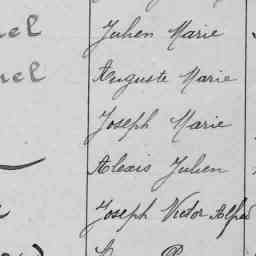 Julien Marie
Auguste Marie
Joseph Marie
Alexis Julien
Joseph Victor Alfred